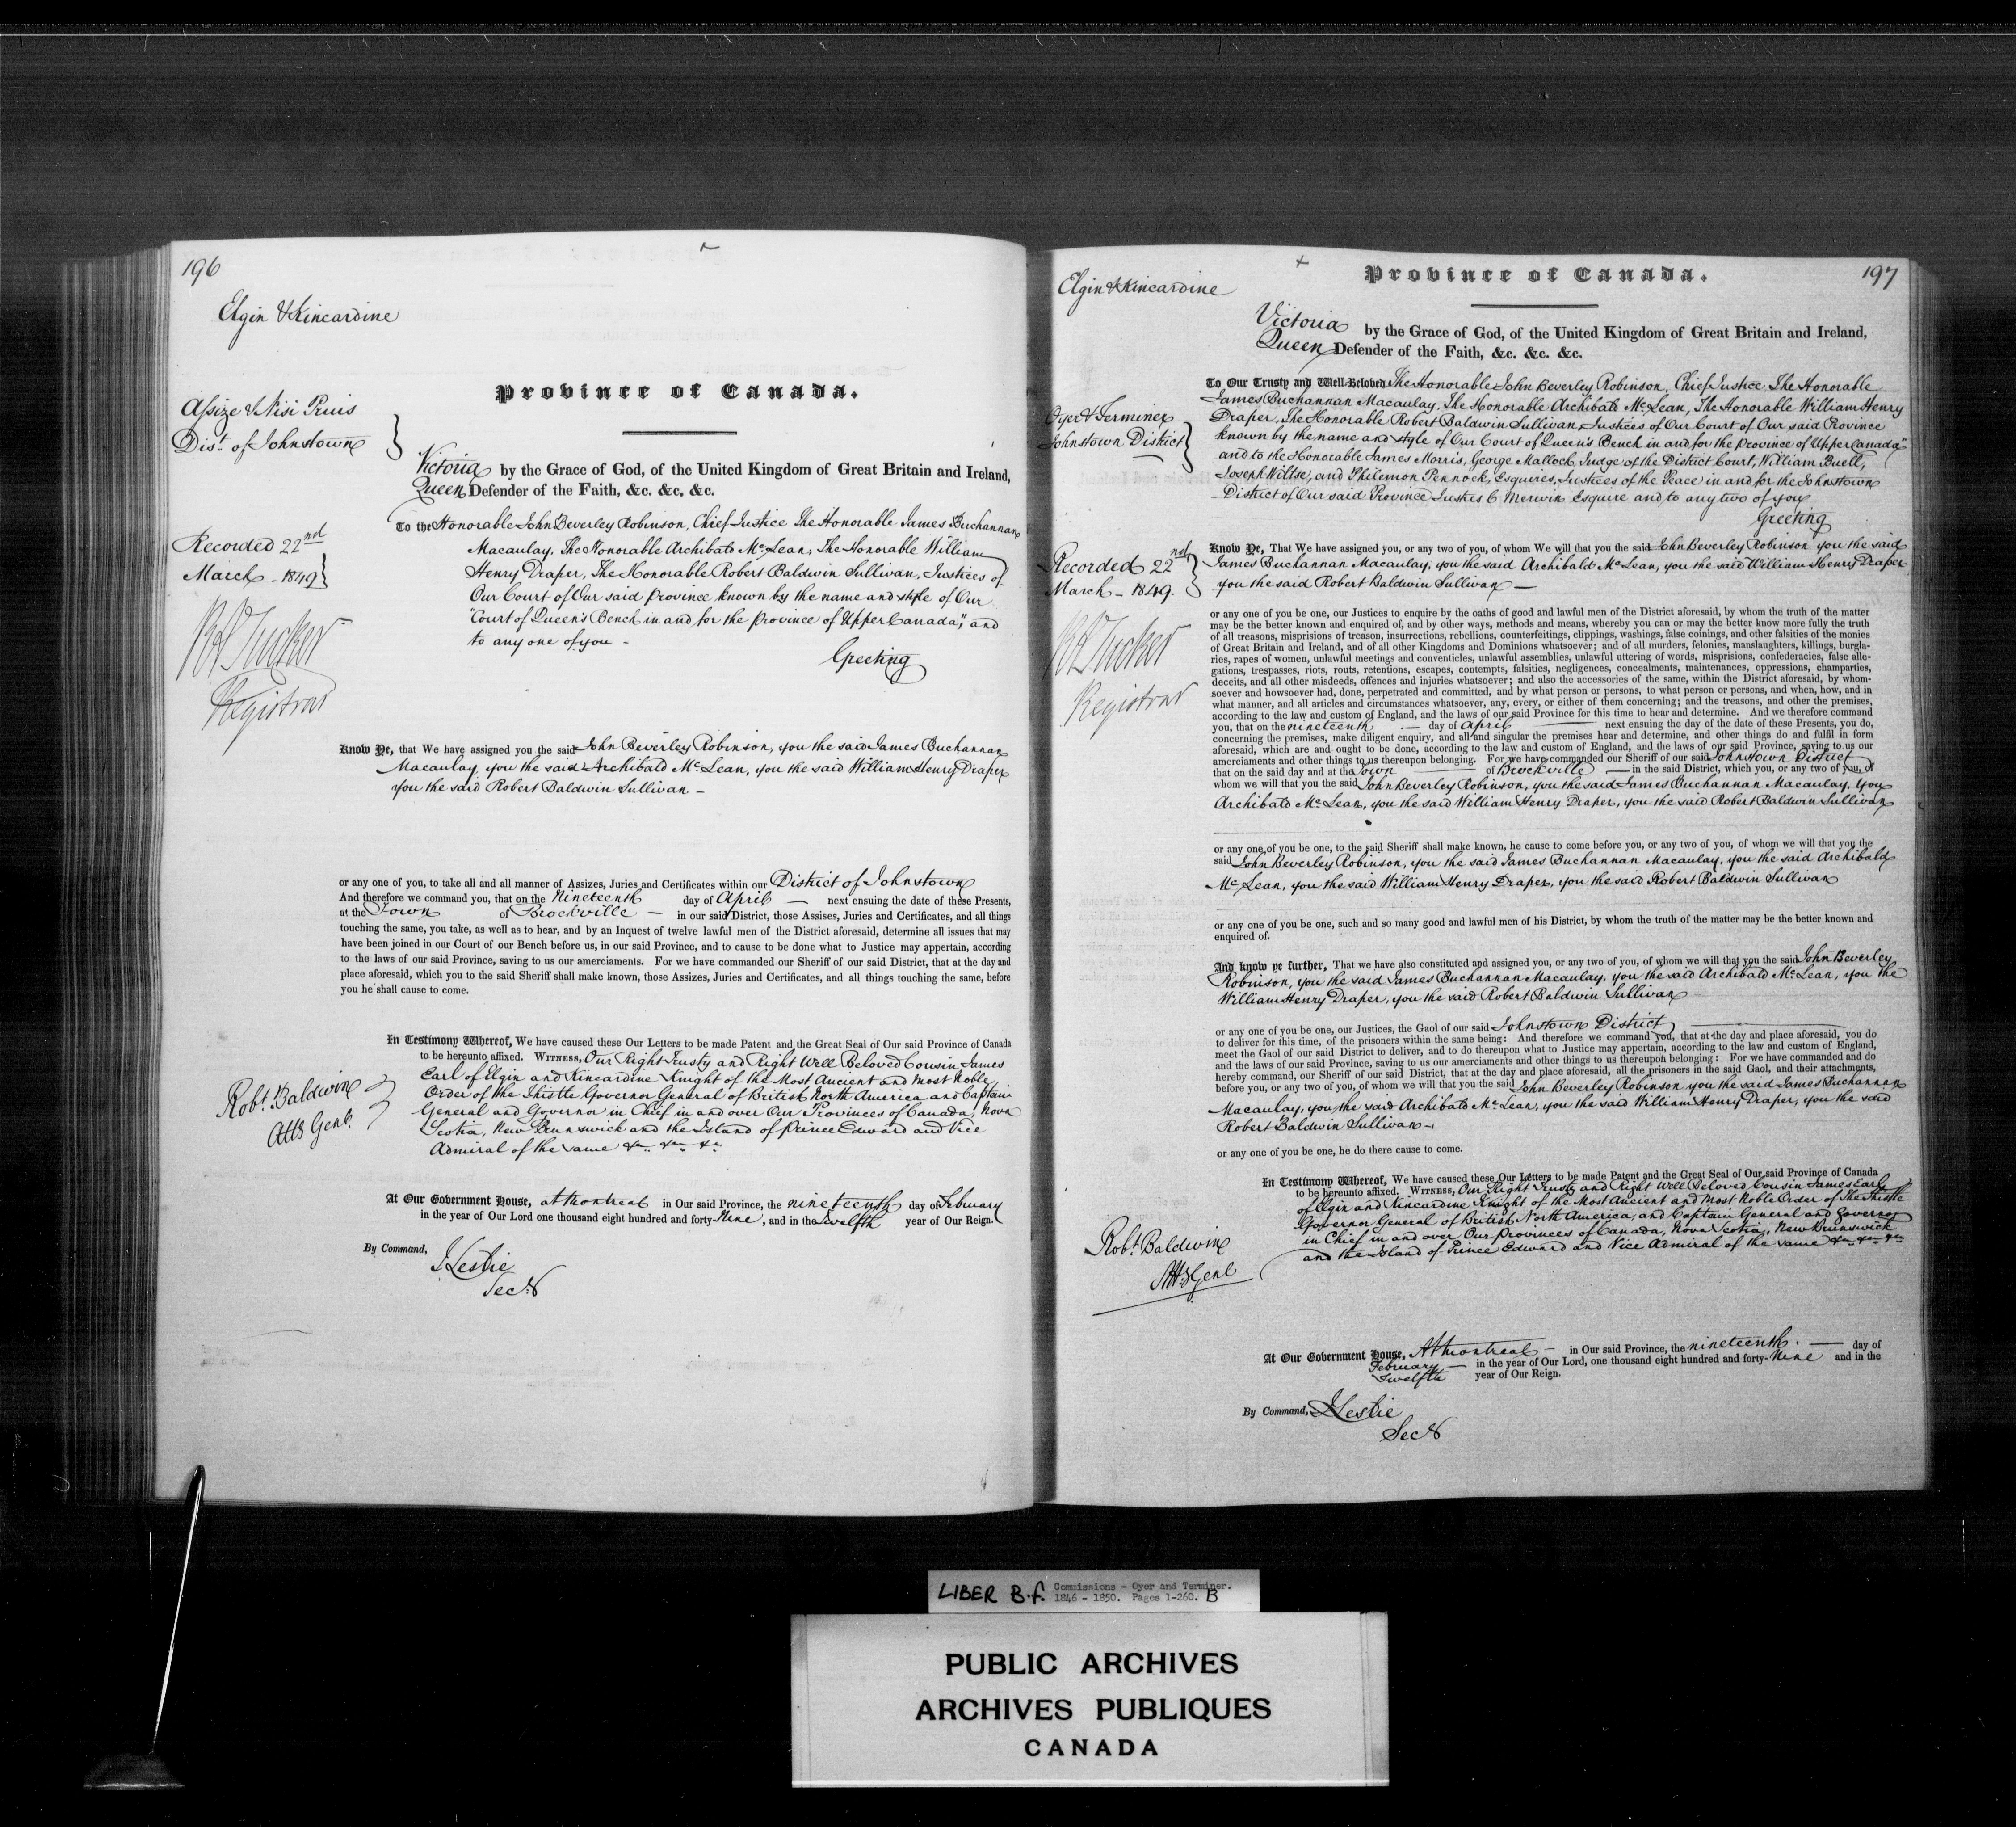 196
Elgin & Kincardine
Assize & Nisi Prius
Dist. of Johnstown
Recorded 22nd
March - 1849
RA Tucker
Registrar
Province of Canada.
Victoria by the Grace of God, of the United Kingdom of Great Britain and Ireland,
Queen Defender of the Faith, &c. &c. &c.
To the Honorable John Beverley Robinson, Chief Justice The Honorable James Buchannan
Macaulay, The Honorable Archibald McLean, The Honorable William
Henry Draper, The Honorable Robert Baldwin Sullivan, Justices of
Our Court of Our said Province known by the name and style of Our
"Court of Queen's Bench in and for the Province of Upper Canada", and
to any one of you -
Greeting
Know Ye, that We have assigned you the said John Beverley Robinson, you the said James Buchannan
Macaulay, you the said Archibald McLean, you the said William Henry Draper
you the said Robert Baldwin Sullivan -
or any one of you, to take all and all manner of Assizes, Juries and Certificates within our District of Johnstown
And therefore we command you, that on the Nineteenth day of April - next ensuing the date of these Presents,
at the Town of Brockville - in our said District, those Assises, Juries and Certificates, and all things
touching the same, you take, as well as to hear, and by an Inquest of twelve lawful men of the District aforesaid, determine all issues that may
have been joined in our Court of our Bench before us, in our said Province, and to cause to be done what to Justice may appertain, according
to the laws of our said Province, saving to us our amerciaments. For we have commanded our Sheriff of our said District, that at the day and
place aforesaid, which you to the said Sheriff shall make known, those Assizes, Juries and Certificates, and all things touching the same, before
you he shall cause to come.
In Testimony Whereof, We have caused these Our Letters to be made Patent and the Great Seal of Our said Province of Canada
to be hereunto affixed. WITNESS, Our Right Trusty and Right Well Beloved Cousin James
Earl of Elgin and Kincardine Knight of the Most Ancient and most Noble
Order of the Thistle Governor General of British North America and Captain
General and Governor in Chief in and over Our Provinces of Canada, Nova
Scotia, New Brunswick and the Island of Prince Edward and Vice
Admiral of the same &c. &c. &c.
Robt. Baldwin
Atty Genl.
At Our Government House, at Montreal in Our said Province, the nineteenth day of February
in the year of Our Lord one thousand eight hundred and forty-Nine, and in the Twelfth year of Our Reign.
By Command,
J Leslie
Secy
197
Elgin & Kincardine
Province of Canada.
Victoria by the Grace of God, of the United Kingdom of Great Britain and Ireland,
Queen Defender of the Faith, &c. &c. &c.
Oyer & Terminer
Johnstown District
Recorded 22nd
March - 1849.
RA Tucker
Registrar
To Our Trusty and Well-Beloved The Honorable John Beverley Robinson, Chief Justice, The Honorable
James Buchannan Macaulay, The Honorable Archibald McLean, The Honorable William Henry
Draper, The Honorable Robert Baldwin Sullivan, Justices of Our Court of Our said Province
known by the name and style of Our Court of Queen's Bench in and for the Province of Upper Canada"
and to the Honorable James Morris, George Malloch, Judge of the District Court, William Buell,
Joseph Wiltse, and Philemon Pennock, Esquires, Justices of the Peace in and for the Johnstown
District of Our said Province Justus S Merwin Esquire and to any two of you
Greeting
Know Ye, That We have assigned you, or any two of you, of whom We will that you the said John Beverley Robinson you the said
James Buchannan Macaulay, you the said Archibald McLean, you the said William Henry Draper
you the said Robert Baldwin Sullivan -
or any one of you be one, our Justices to enquire by the oaths of good and lawful men of the District aforesaid, by whom the truth of the matter
may be the better known and enquired of, and by other ways, methods and means, whereby you can or may the better know more fully the truth
of all treasons, misprisions of treason, insurrections, rebellions, counterfeitings, clippings, washings, false coinings, and other falsities of the monies
of Great Britain and Ireland, and of all other Kingdoms and Dominions whatsoever; and of all murders, felonies, manslaughters, killings, burgla-
ries, rapes of women, unlawful meetings and conventicles, unlawful assemblies, unlawful uttering of words, misprisions, confederacies, false alle-
gations, trespasses, riots, routs, retentions, escapes, contempts, falsities, negligences, concealments, maintenances, oppressions, champarties,
deceits, and all other misdeeds, offences and injuries whatsoever; and also the accessories of the same, within the District aforesaid, by whom-
soever and howsoever had, done, perpetrated and committed, and by what person or persons, to what person or persons, and when, how, and in
what manner, and all articles and circumstances whatsoever, any, every, or either of them concerning; and the treasons, and other the premises,
according to the law and custom of England, and the laws of our said Province for this time to hear and determine. And we therefore command
you, that on the nineteenth - day of April next ensuing the day of the date of these Presents, you do,
concerning the premises, make diligent enquiry, and all and singular the premises hear and determine, and other things do and fulfil in form
aforesaid, which are and ought to be done, according to the law and custom of England, and the laws of our said Province, saving to us our
amerciaments and other things to us thereupon belonging. For we have commanded our Sheriff of our said Johnstown District
that on the said day and at the Town of Brockville - in the said District, which you, or any two of you, of
whom we will that you the said John Beverley Robinson, you the said James Buchannan Macaulay, you
Archibald McLean, you the said William Henry Draper, you the said Robert Baldwin Sullivan
or any one of you be one, to the said Sheriff shall make known, he cause to come before you, or any two of you, of whom we will that you the
said John Beverley Robinson, you the said James Buchannan Macaulay, you the said Archibald
McLean, you the said William Henry Draper, you the said Robert Baldwin Sullivan
or any one of you be one, such and so many good and lawful men of his District, by whom the truth of the matter may be the better known and
enquired of.
And know ye further, That we have also constituted and assigned you, or any two of you, of whom we will that you the said John Beverley
Robinson, you the said James Buchannan Macaulay, you the said Archibald McLean, you the
William Henry Draper, you the said Robert Baldwin Sullivan
or any one of you be one, our Justices, the Gaol of our said Johnstown District
to deliver for this time, of the prisoners within the same being: And therefore we command you, that at the day and place aforesaid, you do
meet the Gaol of our said District to deliver, and to do thereupon what to Justice may appertain, according to the law and custom of England,
and the laws of our said Province, saving to us our amerciaments and other things to us thereupon belonging: For we have commanded and do
hereby command, our Sheriff of our said District, that at the day and place aforesaid, all the prisoners in the said Gaol, and their attachments,
before you, or any two of you, of whom we will that you the said John Beverley Robinson you the said James Buchannan
Macaulay, you the said Archibald McLean, you the said William Henry Draper, you the said
Robert Baldwin Sullivan -
or any one of you be one, he do there cause to come.
In Testimony Whereof, We have caused these Our Letters to be made Patent and the Great Seal of Our said Province of Canada
to be hereunto affixed. WITNESS, Our Right Trusty and Right Well Beloved Cousin James Earl
of Elgin and Kincardine Knight of the Most Ancient and Most Noble Order of The Thistle
Governor General of British North America, and Captain General and Governor
in Chief in and over Our Provinces of Canada, Nova Scotia, New Brunswick
and the Island of Prince Edward and Vice Admiral of the same &c. &c. &c.
Robt. Baldwin
Atty Genl
At Our Government House, At Montreal - in Our said Province, the nineteenth. - day of
February - in the year of Our Lord, one thousand eight hundred and forty-Nine and in the
Twelfth year of Our Reign.
By Command, J Leslie
Secy
LIBER B.f. Commissions - Oyer and Terminer.
1846 - 1850. Pages 1-260. B
PUBLIC ARCHIVES
ARCHIVES PUBLIQUES
CANADA